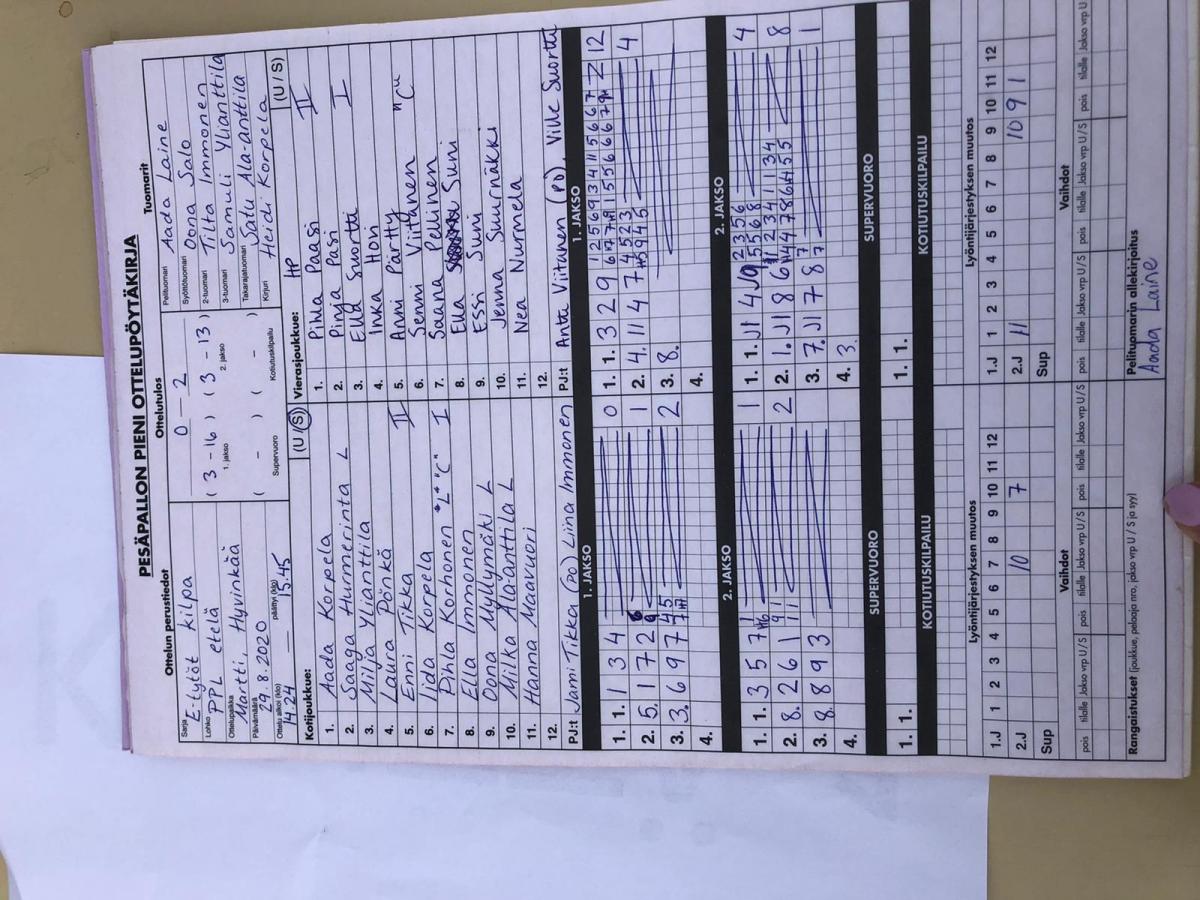 PESÄPALLON PIENI OTTELUPÖYTÄKIRJA
Ottelun perustiedot
Sarja
E-tytöt kilpa
Lohko
PPL etelä
Ottelupaikka
Martti, Hyvinkää
Päivämäärä
29.8.2020
Ottelu alkoi (klo) päättyi (klo)
14.24 — 15.45
Ottelutulos
0 — 2
( 3 - 16 ) ( 3 - 13 )
1. jakso 2. jakso
( - ) ( - )
Supervuoro Kotiutuskilpailu
Tuomarit
Pelituomari Aada Laine
Syöttötuomari Oona Salo
2-tuomari Tilta Immonen
3-tuomari Samuli Ylianttila
Takarajatuomari Satu Ala-anttila
Kirjuri Heidi Korpela
Kotijoukkue: (U / S)
1. Aada Korpela
2. Saaga Hurmerinta L
3. Milja Ylianttila
4. Laura Pönkä
5. Enni Tikka II
6. Iida Korpela
7. Pihla Korhonen "L" "C" I
8. Ella Immonen
9. Oona Myllymäki L
10. Milka Ala-anttila L
11. Hanna Haavuori
12.
PJ:t Jami Tikka (PJ) Liina Immonen
Vierasjoukkue: HP (U / S)
1. Pihla Paasi II
2. Pinja Pasi I
3. Ella Suortti
4. Inka Hovi
5. Anni Pärtty
6. Senni Viitanen "C"
7. Saana Pellinen
8. Ella Suni
9. Essi Suni
10. Jenna Suursnäkki
11. Nea Nurmela
12.
PJ:t Antti Viitanen (PJ), Ville Suortti
1. JAKSO
1. 1. 1 3 4 0
2. 5. 1 7 2 1
3. 3. 6 9 7 2
4.
1. JAKSO
1. 1. 3 2 9 12
2. 4. 11 4 7 4
3. 8.
4.
2. JAKSO
1. 1. 3 5 7 1
2. 8. 2 6 1 2
3. 8. 8 9 3
4.
2. JAKSO
1. 1. 4
2. 1. 8
3. 7. 1
4. 3.
SUPERVUORO
1. 1.
SUPERVUORO
1. 1.
KOTIUTUSKILPAILU
KOTIUTUSKILPAILU
Lyöntijärjestyksen muutos
1.J 1 2 3 4 5 6 7 8 9 10 11 12
2.J 10 7
Sup
Lyöntijärjestyksen muutos
1.J 1 2 3 4 5 6 7 8 9 10 11 12
2.J 11 10 9 1
Sup
Vaihdot
pois tilalle Jakso vrp U/S pois tilalle Jakso vrp U/S pois tilalle Jakso vrp U/S
Vaihdot
pois tilalle Jakso vrp U/S pois tilalle Jakso vrp U/S pois tilalle Jakso vrp U
Rangaistukset (joukkue, pelaaja nro, jakso vrp U / S ja syy)
Pelituomarin allekirjoitus
Aada Laine